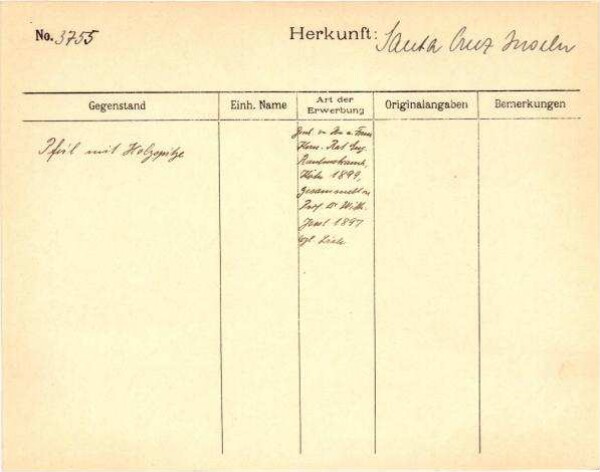 No. 3755
Herkunft: Santa Cruz Inseln
Gegenstand
Einh. Name
Art der Erwerbung
Originalangaben
Bemerkungen
Pfeil mit Holzspitze
Gesch. v. Hn. u. Frau
Kom. Rat Eug.
Rautenstrauch,
Köln 1899,
gesammelt von
Prof. Dr. Wilh.
Joest 1897
vgl. Liste